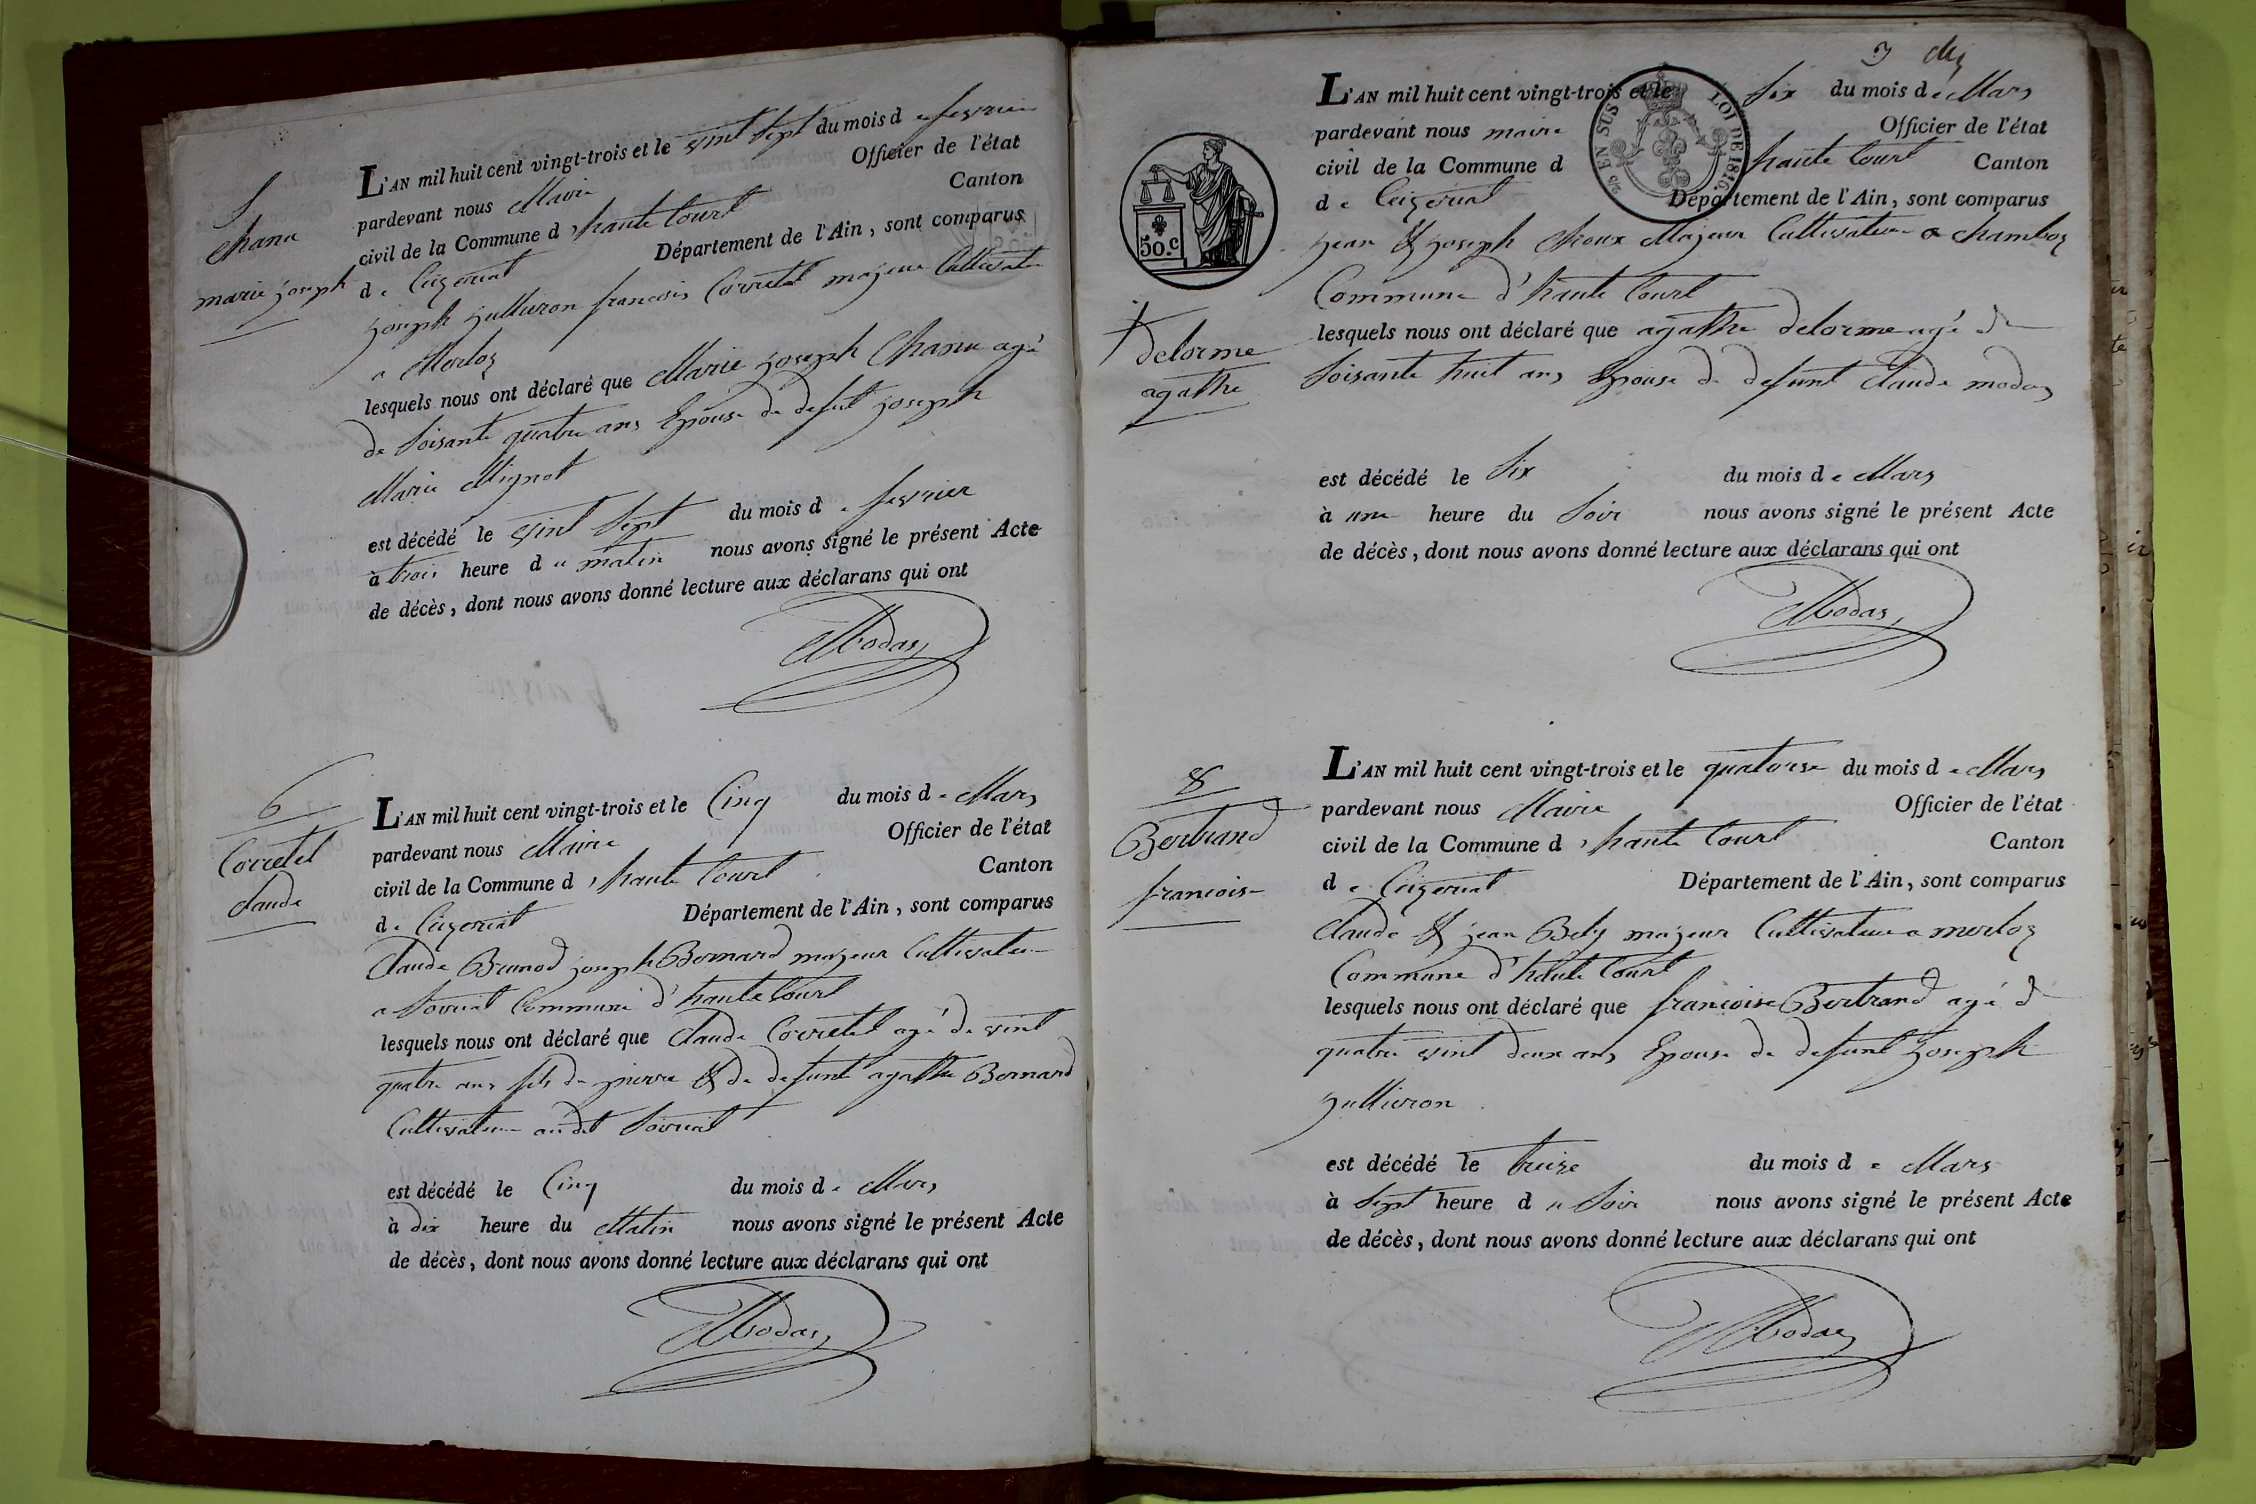 5
Chanu
marie joseph
L'AN mil huit cent vingt-trois et le vint sept du mois de fevrier
pardevant nous Maire Officier de l'état
civil de la Commune d'haute Court Canton
de Ceizeriat Département de l'Ain, sont comparus
joseph jullieron francois Corretel majeur Cultivateur
a Merloz
lesquels nous ont déclaré que Marie joseph Chanu agé
de Soisante quatre ans Epouse de defunt joseph
Marie Mignot
est décédé le vint sept du mois de fevrier
à trois heure du matin nous avons signé le présent Acte
de décès, dont nous avons donné lecture aux déclarans qui ont
Modas
6
Corretel
claude
L'AN mil huit cent vingt-trois et le Cinq du mois de Mars
pardevant nous Maire Officier de l'état
civil de la Commune d'haute Court Canton
de Ceizeriat Département de l'Ain, sont comparus
Claude Brunod joseph Bernard majeur Cultivateur
a Commune d'hautecourt
lesquels nous ont déclaré que claude Corretel agé de vint
quatre ans fils de pierre & de defunte agathe Bernard
Cultivateur audit
est décédé le Cinq du mois de Mars
à dix heure du Matin nous avons signé le présent Acte
de décès, dont nous avons donné lecture aux déclarans qui ont
Modas
3
50.c
EN SUS
LOI DE 1816.
L'AN mil huit cent vingt-trois et le Six du mois de Mars
pardevant nous maire Officier de l'état
civil de la Commune d haute Court Canton
de Ceizeriat Département de l'Ain, sont comparus
jean & joseph Majeur Cultivateur a chamboz
Commune d'haute Court
delorme
agathe
lesquels nous ont déclaré que agathe delorme agé de
Soisante huit ans Epouse de defunt Claude modas
est décédé le Six du mois de Mars
à une heure du Soir nous avons signé le présent Acte
de décès, dont nous avons donné lecture aux déclarans qui ont
Modas
8
Bertrand
francoise
L'AN mil huit cent vingt-trois et le quatorse du mois de Mars
pardevant nous Maire Officier de l'état
civil de la Commune d'haute Court Canton
de Ceizeriat Département de l'Ain, sont comparus
Claude & jean Bely majeur Cultivateur a merloz
Commune d'haute Court
lesquels nous ont déclaré que francoise Bertrand agé de
quatre vint deux ans Epouse de defunt joseph
jullieron
est décédé le treize du mois de Mars
à Sept heure du Soir nous avons signé le présent Acte
de décès, dont nous avons donné lecture aux déclarans qui ont
Modas